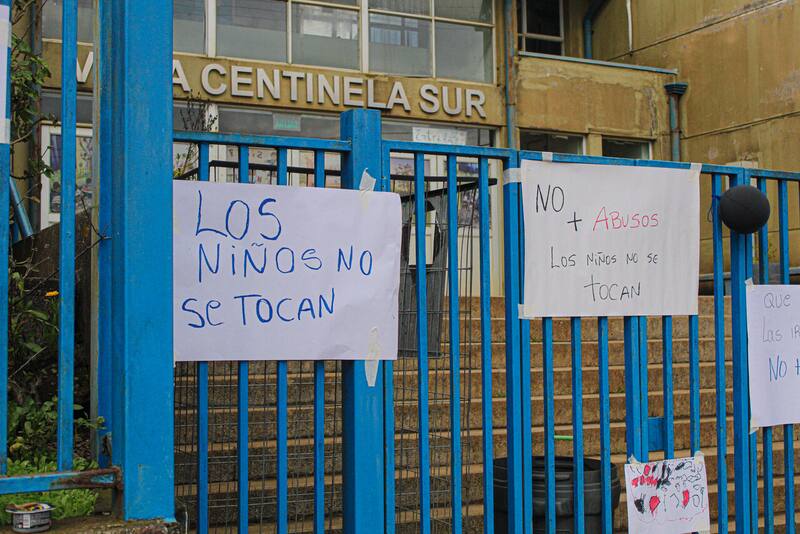 CENTINELA SUR
LOS
NIÑOS NO
SE TOCAN
NO
+ ABUSOS
LOS NIÑOS NO SE
TOCAN
QUE
LAS
NO +